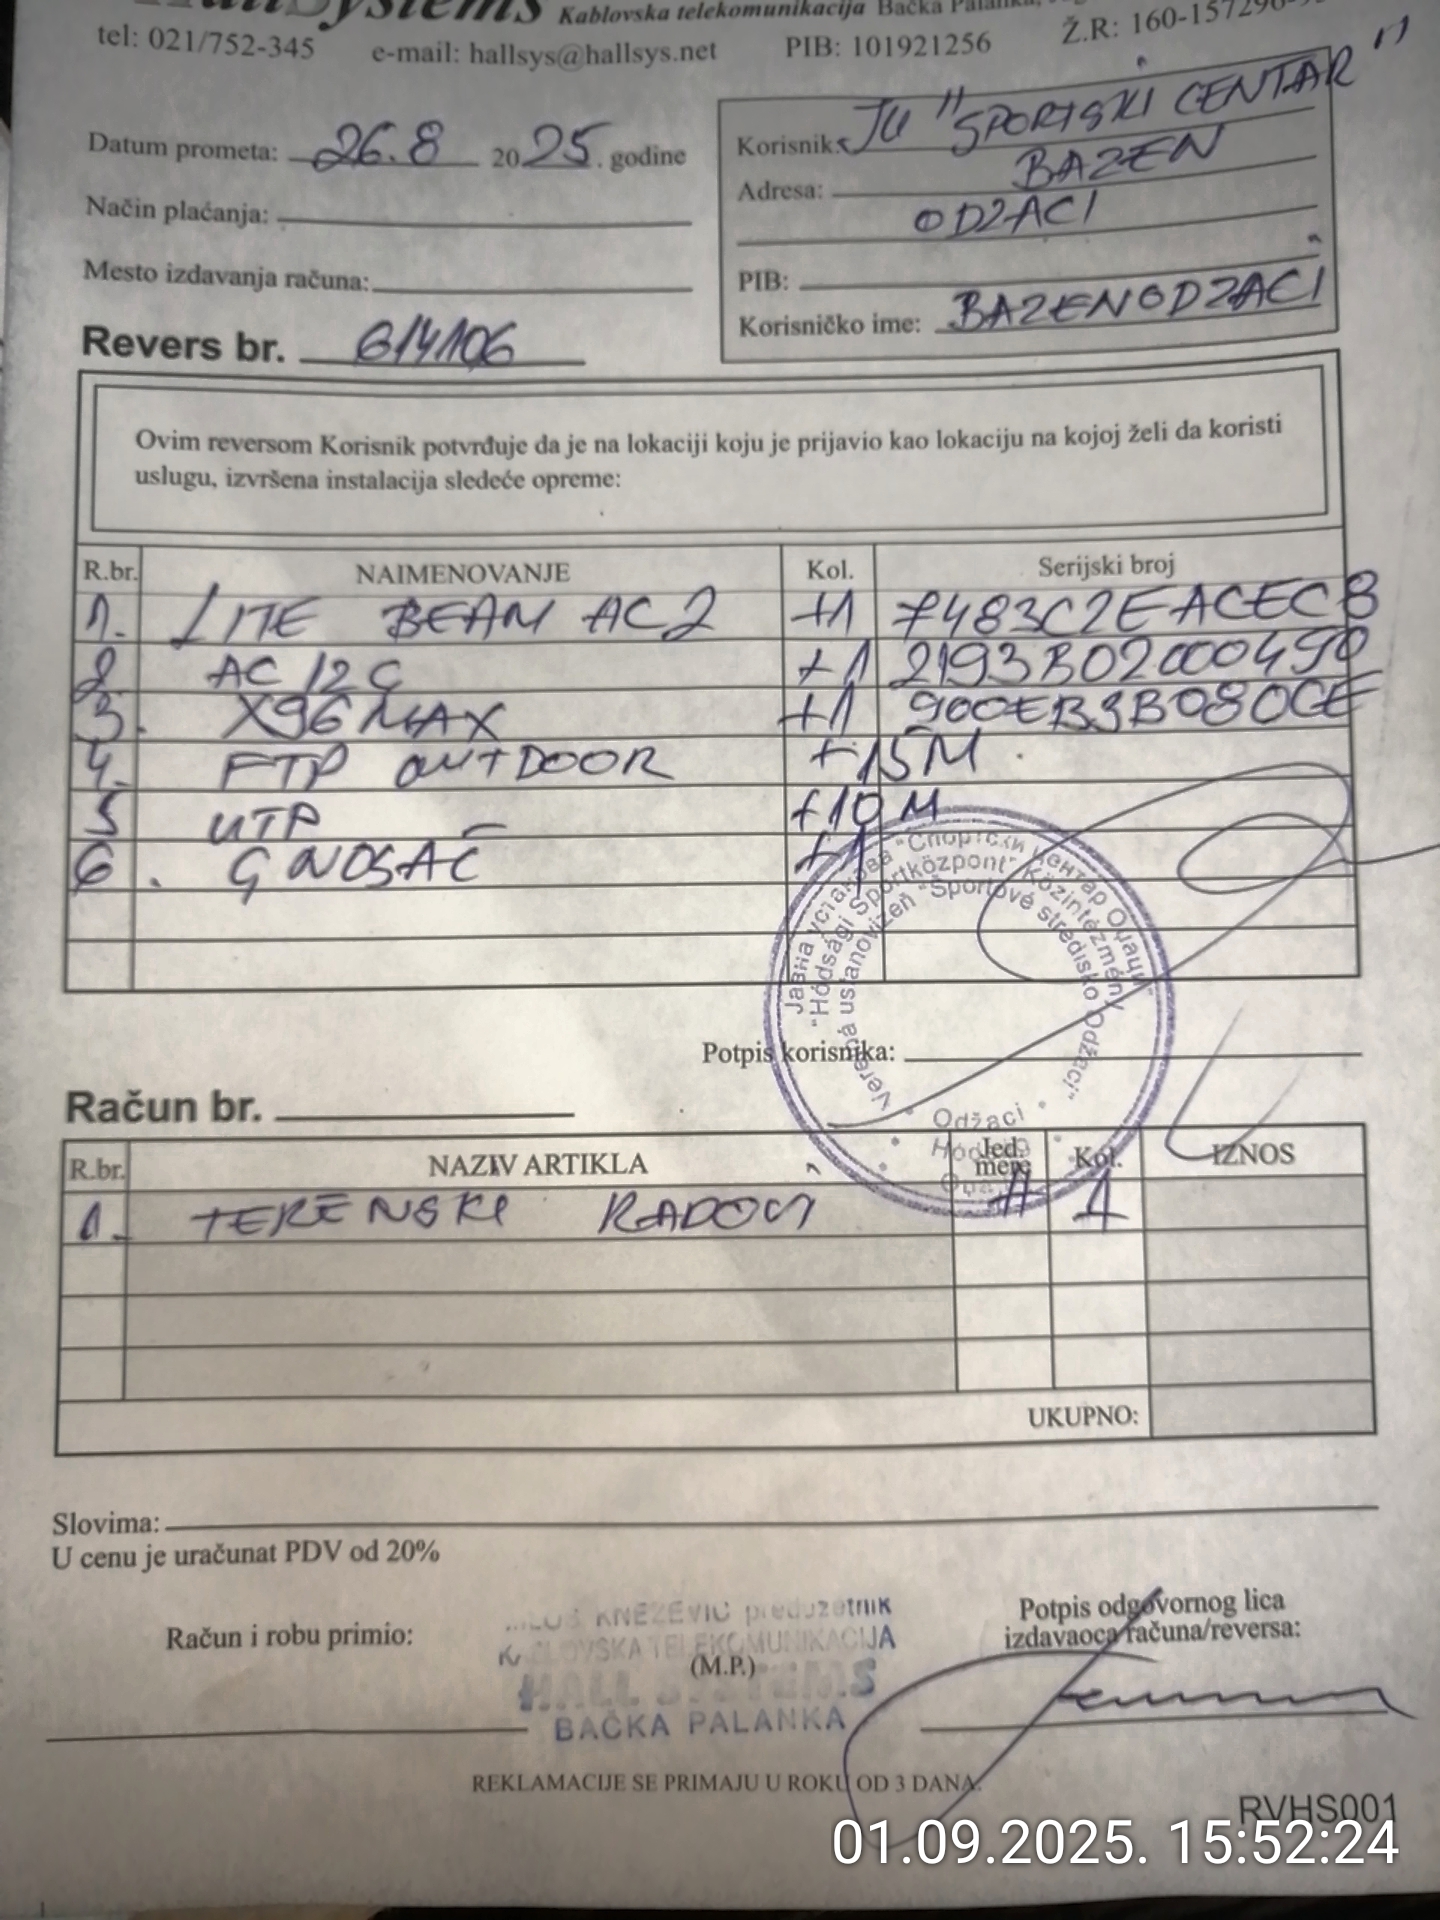 HallSystems Kablovska telekomunikacija Bačka Palanka,
tel: 021/752-345 e-mail: hallsys@hallsys.net PIB: 101921256 Ž.R: 160-157290-
Datum prometa: 26.8 2025. godine
Način plaćanja:
Mesto izdavanja računa:
Revers br. 614106
Korisnik: JU "SPORTSKI CENTAR"
BAZEN
Adresa:
ODZACI
PIB:
Korisničko ime: BAZENODZACI
Ovim reversom Korisnik potvrđuje da je na lokaciji koju je prijavio kao lokaciju na kojoj želi da koristi
uslugu, izvršena instalacija sledeće opreme:
R.br. NAIMENOVANJE Kol. Serijski broj
1. LITE BEAM AC2 +1 7483C2EACEC8
2 AC12G +1 2193B02000490
3. X96 MAX +1 900EB3B080CE
4. FTP OUTDOOR +15M
5 UTP +10M
6. G NOSAČ +1
Јавна установа "Спортски центар Оџаци"
"Hódsági Sportközpont" Közintézmény
Verejná ustanovizeň "Športové stredisko Odžaci"
Odžaci
Potpis korisnika:
Račun br.
R.br. NAZIV ARTIKLA Jed. mere Kol. IZNOS
1. TERENSKI RADOVI H 1
UKUPNO:
Slovima:
U cenu je uračunat PDV od 20%
Račun i robu primio:
KNEZEVIC preduzetnik
TELEKOMUNIKACIJA
(M.P.)
HALL SYSTEMS
BAČKA PALANKA
Potpis odgovornog lica
izdavaoca računa/reversa:
REKLAMACIJE SE PRIMAJU U ROKU OD 3 DANA.
RVHS001
01.09.2025. 15:52:24